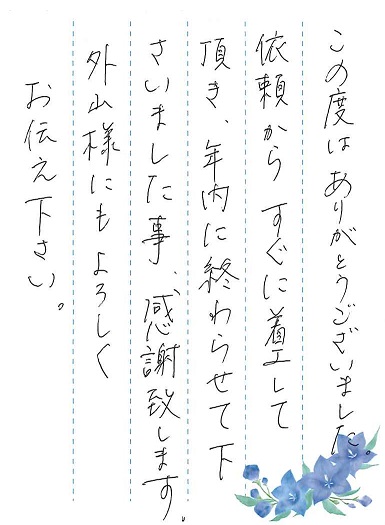 この度はありがとうございました。
依頼からすぐに着工して
頂き、年内に終わらせて下
さいました事、感謝致します。
外山様にもよろしく
お伝え下さい。